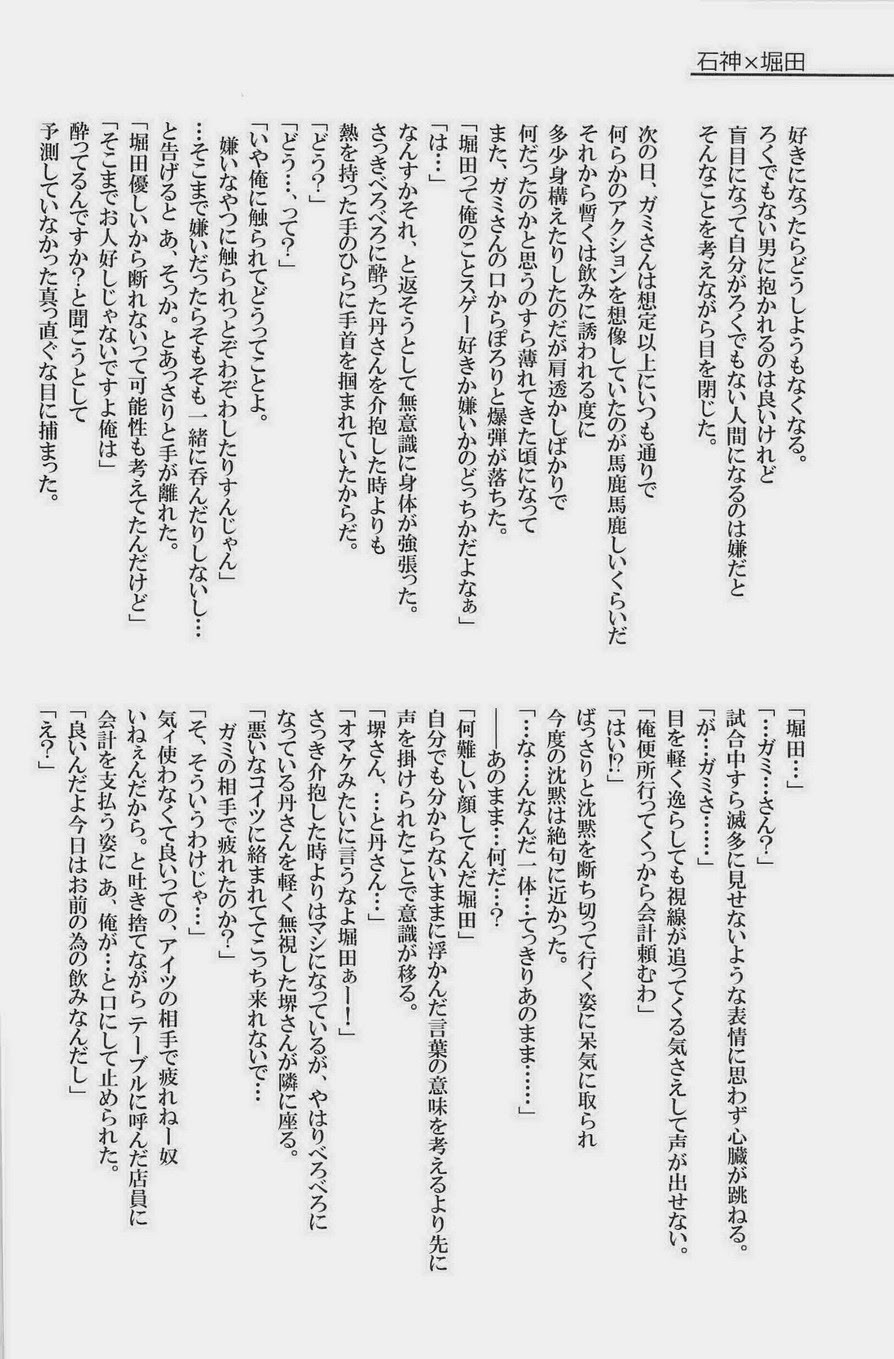 石神×堀田
好きになったらどうしようもなくなる。
ろくでもない男に抱かれるのは良いけれど
盲目になって自分がろくでもない人間になるのは嫌だと
そんなことを考えながら目を閉じた。
次の日、ガミさんは想定以上にいつも通りで
何らかのアクションを想像していたのが馬鹿馬鹿しいくらいだ
それから暫くは飲みに誘われる度に
多少身構えたりしたのだが肩透かしばかりで
何だったのかと思うのすら薄れてきた頃になって
また、ガミさんの口からぽろりと爆弾が落ちた。
「堀田って俺のことスゲー好きか嫌いかのどっちかだよなぁ」
「は…」
なんすかそれ、と返そうとして無意識に身体が強張った。
さっきべろべろに酔った丹さんを介抱した時よりも
熱を持った手のひらに手首を掴まれていたからだ。
「どう？」
「どう…、って？」
「いや俺に触られてどうってことよ。
嫌いなやつに触られっとぞわぞわしたりすんじゃん」
…そこまで嫌いだったらそもそも一緒に呑んだりしないし…
と告げると あ、そっか。とあっさりと手が離れた。
「堀田優しいから断れないって可能性も考えてたんだけど」
「そこまでお人好しじゃないですよ俺は」
酔ってるんですか？と聞こうとして
予測していなかった真っ直ぐな目に捕まった。
「堀田…」
「…ガミ…さん？」
試合中すら滅多に見せないような表情に思わず心臓が跳ねる。
「が…ガミさ……」
目を軽く逸らしても視線が追ってくる気さえして声が出せない。
「俺便所行ってくっから会計頼むわ」
「はい!?」
ばっさりと沈黙を断ち切って行く姿に呆気に取られ
今度の沈黙は絶句に近かった。
「…な…んなんだ一体…てっきりあのまま……」
――あのまま…何だ…？
「何難しい顔してんだ堀田」
自分でも分からないままに浮かんだ言葉の意味を考えるより先に
声を掛けられたことで意識が移る。
「堺さん、…と丹さん…」
「オマケみたいに言うなよ堀田ぁー！」
さっき介抱した時よりはマシになっているが、やはりべろべろに
なっている丹さんを軽く無視した堺さんが隣に座る。
「悪いなコイツに絡まれててこっち来れないで…
ガミの相手で疲れたのか？」
「そ、そういうわけじゃ…」
気ィ使わなくて良いっての、アイツの相手で疲れねー奴
いねぇんだから。と吐き捨てながら テーブルに呼んだ店員に
会計を支払う姿に あ、俺が…と口にして止められた。
「良いんだよ今日はお前の為の飲みなんだし」
「え？」